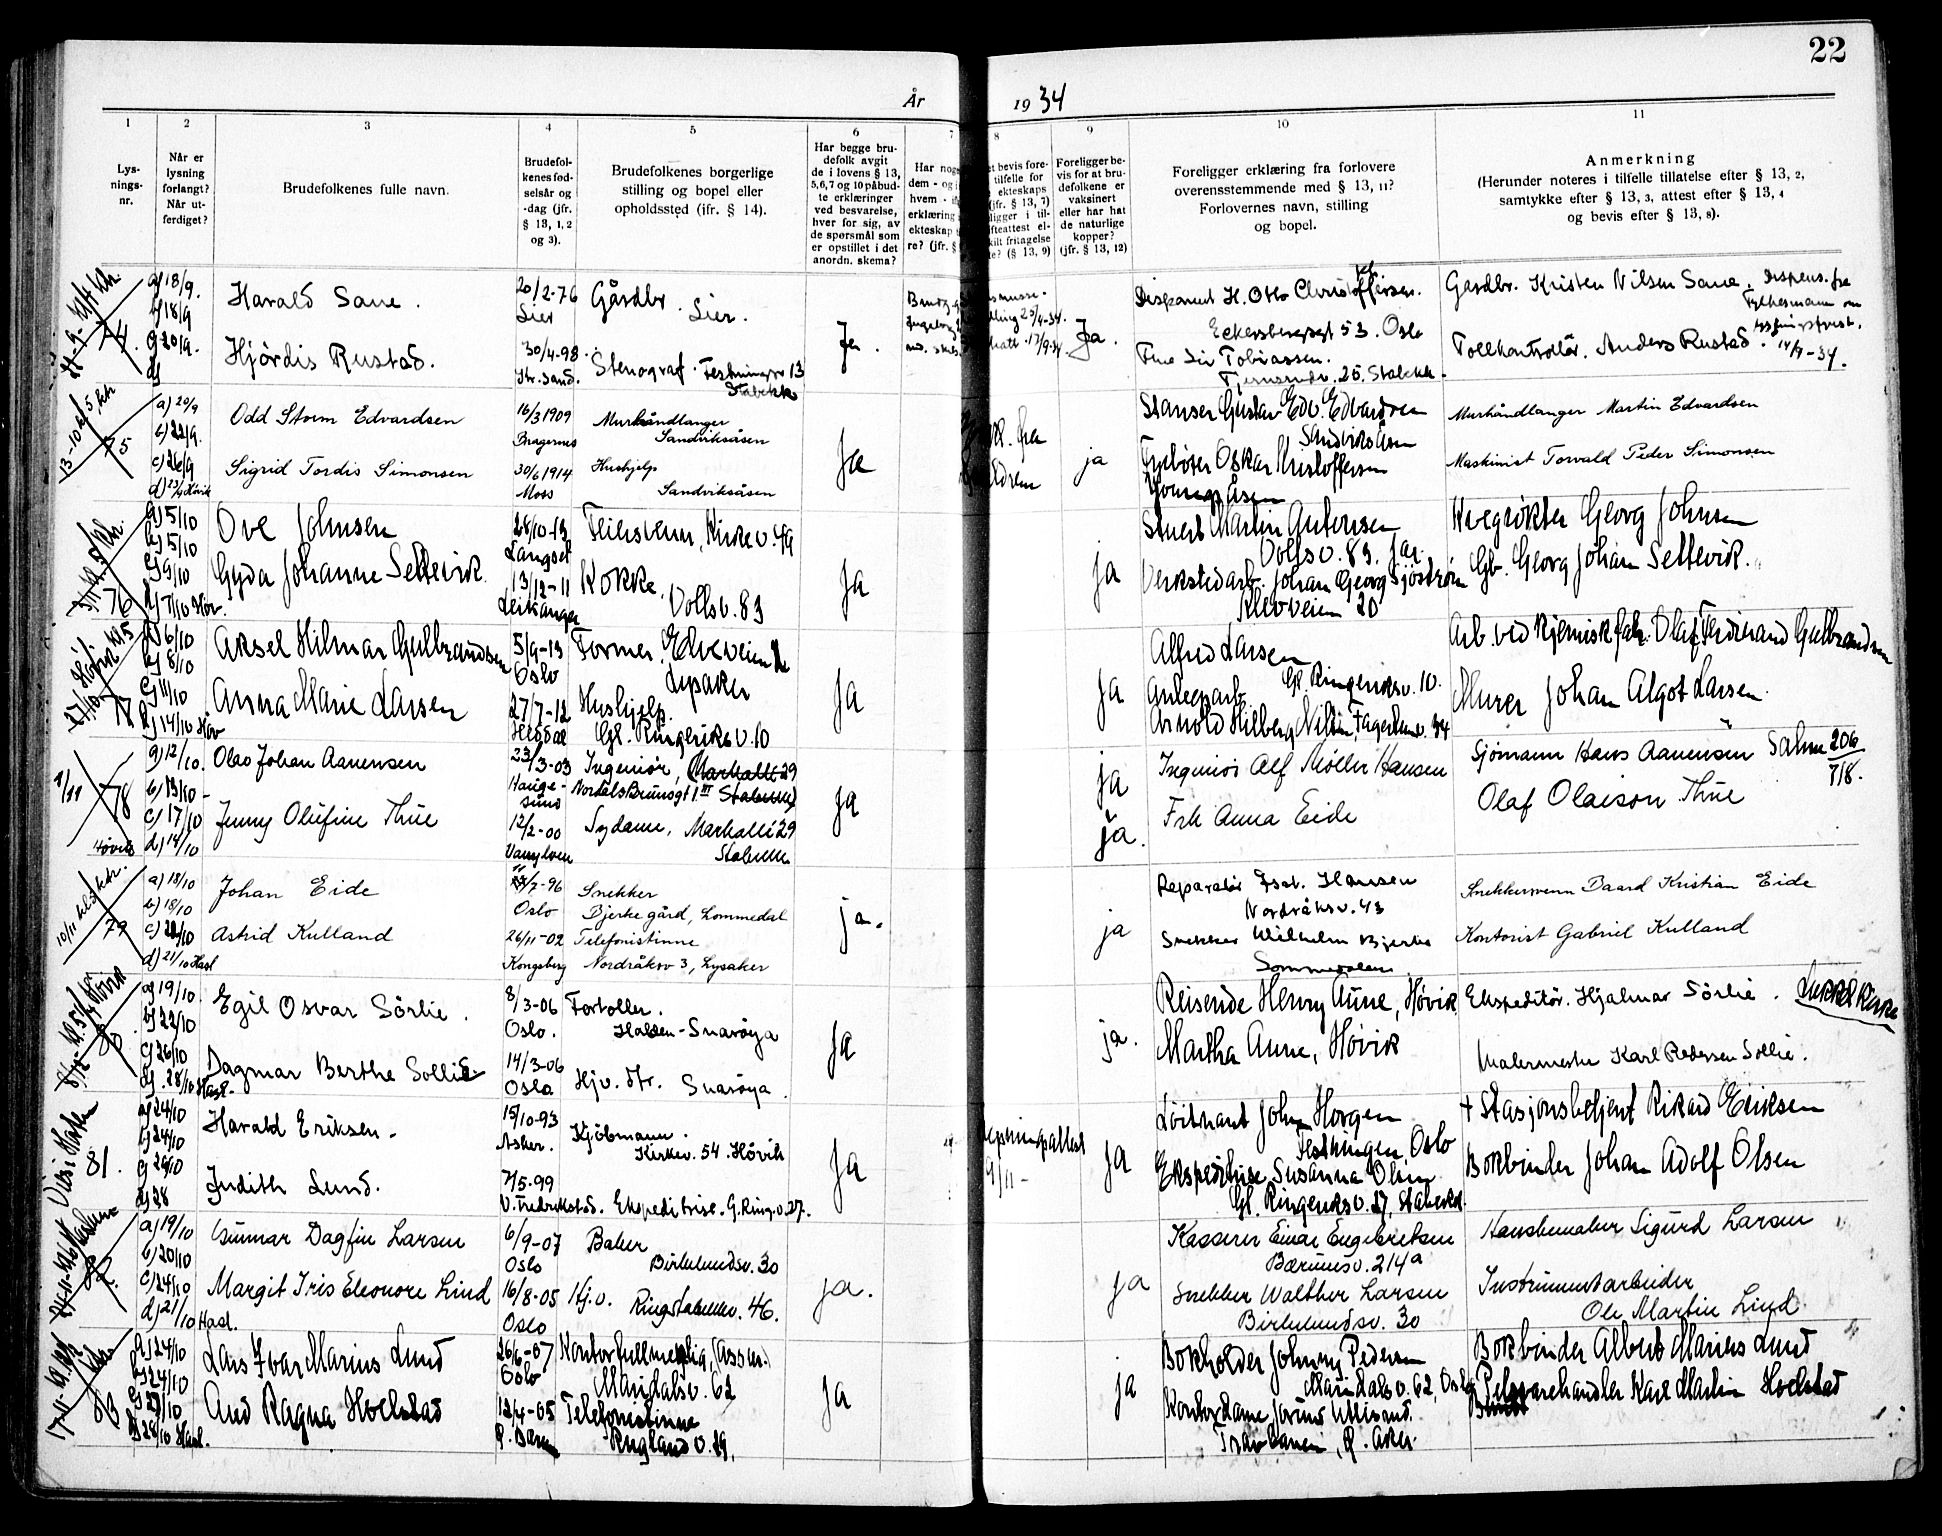 22
År 1934
1 2 3 4 5 6 7 8 9 10 11
Lys-
nings-
nr.
Når er
lysning
forlangt?
Når ut-
ferdiget?
Brudefolkenes fulle navn.
Brudefol-
kenes fød-
selsår og
-dag (jfr.
§ 13, 1, 2
og 3).
Brudefolkenes borgerlige
stilling og bopel eller
opholdssted (ifr. § 14).
Har begge bru-
defolk avgit
de i lovens § 13,
5,6,7 og 10 påbud-
te erklæringer
ved besvarelse,
hver for sig, av
de spørsmål som
er opstillet i det
anordn. skema?
Har nog
dem - og i
hvem - i
erklæring
ekteskap
re? (jfr. §
et bevis fore-
tilfelle for
ekteskaps
(jfr. § 13, 7)
ligger i til-
ifteattest el-
kilt fritagelse
e? (§ 13, 9)
Foreligger be-
vis for at bru-
defolkene er
vaksinert
eller har hat
de naturlige
kopper?
(jfr. § 13, 12)
Foreligger erklæring fra forlovere
overensstemmende med § 13, 11?
Forlovernes navn, stilling
og bopel.
Anmerkning
(Herunder noteres i tilfelle tillatelse efter § 13, 2,
samtykke efter § 13, 3, attest efter § 13, 4
og bevis efter § 13, 8).
74.
a) 18/9.
b) 18/9
c) 20/9.
d)
Harald Sane.
20/2-76
Lier
Gårdbr.
Lier.
Hjördis Rustad.
30/4-98.
Kr.sand.
Stenograf.
13
Stabekk
Ja.
Ja.
Disponent H. Otto Christoffersen.
Eckersbergsgt 53. Oslo
Frue Siv Tobiassen.
25. Stabekk.
Gårdbr. Kristen Nilsen Sane. Dispens. fra
Fylkesmann om
Tollkontrollör. Anders Rustad.
14/9-34.
13-10 kl 5, ktr
75
a) 20/9
b) 22/9.
c) 26/9
d) 23/9 Høvik
Odd Storm Edvardsen
16/3 1909
Bragernes
Murhåndlanger
Sandviksåsen
Sigrid Tordis Simonsen
30/6 1914
Moss
Hushjelp
Sandviksåsen
Ja
ja
Stanser Gustav Edv. Edvardsen
Sandviksåsen
Fyrbøter Oskar Kristoffersen
Murhåndlanger Martin Edvardsen
Maskinist Torvald Peder Simonsen
76
a) 5/10
b) 5/10
c) 9/10
d) 7/10 Høv.
Ove Johnsen
28/10-13
Langset
Kirkev. 49
Gyda Johanne Settevik
13/12-11
Leikanger
Kokke,
Vollsv. 83
Ja
ja
Stuert Martin Antonsen
Vollsv. 83. Jar.
Verkstedarb. Johan Georg Sjöström
Klevveien 20
Kvegrökter Georg Johnsen
Gb. Georg Johan Settevik.
77
a) 6/10
b) 8/10
c) 11/10
d) 14/10 Høv
Aksel Hilmar Gulbrandsen
5/9-13
Oslo
Former. Elveveien
Lysaker
Anna Marie Larsen
27/7-12
Heddal
Hushjelp.
Gl. Ringeriksv. 10
Ja
ja
Alfred Larsen
Anleggsarb. Gl. Ringeriksv. 10.
Arnold Hilberg Nilsen, Fagerheimv. 34
Arb. ved kjemisk fabr. Olaf Ferdinand Gulbrandsen
Murer Johan Algot Larsen.
4/11
78
Høvik
a) 12/10.
b) 13/10 -
c) 17/10
d) 14/10
Olao Johan Aanensen
23/3-03
Hauge-
sund
Ingeniør, Markalle 29
Nordals Brunsgt 1 III Stabekk
Jenny Olufine Thue
12/2-00
Vanylven
Sydame, Markalle 29
Stabekk
Ja
ja
ja.
Ingeniør Alf Møller Hansen
Frk Anna Eide
Sjömann Hans Aanensen Salme 206
7/8.
Olaf Olaison Thue
10/11 kl. 5 ktr.
79
a) 18/10
b) 18/10
c) 22/10
d) 21/10 Hasl
Johan Eide
11/7-96
Oslo
Snekker
Bjerke gård, Lommedal
Astrid Kulland
26/11-02
Kongsberg
Telefonistinne
Nordråksv 3, Lysaker
ja.
ja
Reparatør Fsal. Hansen
Nordråksv. 43
Snekker Wilhelm Bjerke
Lommedalen
Snekkersvenn Baard Kristian Eide
Kontorist Gabriel Kulland
80
a) 19/10.
b) 22/10
c) 26/10
d) 28/10 Hasl.
Egil Osvar Sörlie.
8/3-06
Oslo.
Fortoller.
Halden-Snaröya
Dagmar Berthe Sollie
14/3-06
Oslo
Hjv. dtr. Snaröya.
Ja
ja.
Reisende Henry Aune, Høvik
Martha Aune, Høvik
Ekspeditör. Hjalmar Sörlie. Lukket Kirke
Malermester Karl Pedersen Sollie.
81.
a) 24/10
b) 24/10
c) 26/10
d) 28
Harald Eriksen.
15/10-93
Asker.
Kjöbmann.
Kirkev. 54. Høvik
Judith Lund.
7/5-99
V. Fredrikstad. Ekspeditrise. G. Ring.v. 27.
Ja
9/11-
ja
Löitnant John Horgen
Festningen Oslo
Ekspeditrise Susanna Olsen
Gl. Ringeriksv. 27, Stabekk
+ Stasjonsbetjent Rikard Eriksen
Bokbinder Johan Adolf Olsen
82.
a) 19/10
b) 20/10
c) 24/10
d) 21/10 Hasl.
Gunnar Dagfin Larsen
6/9-07
Oslo
Baker
Birkelundsv. 30
Margit Iris Eleonore Lind
16/8-05
Oslo
Hj.v. Ringstabekkv. 46.
ja.
ja
Kasserer Einar Engebretsen
Bærumsv. 214a
Snekker Walther Larsen
Birkelundsv. 30
Hanskemaker Sigurd Larsen
Instrumentarbeider
Ole Martin Lind.
83
a) 24/10
b) 24/10
c) 27/10
d) 28/10 Hasl.
Lars Ivar Marius Lund
26/6-07
Oslo
Kontorfullmektig, (Assur.)
Maridalsv. 62
Aud Ragna Hoelstad
12/4-05
Ø. Bærum
Telefonistinne
Ruglandv. 19.
Ja
ja
Bokholder Johnny Pedersen
Maridalsv. 62, Oslo
Kontordame Jorund Ullisand.
Ø. Aker.
Bokbinder Albert Marius Lund
Pelsvarehandler Karl Martin Hoelstad